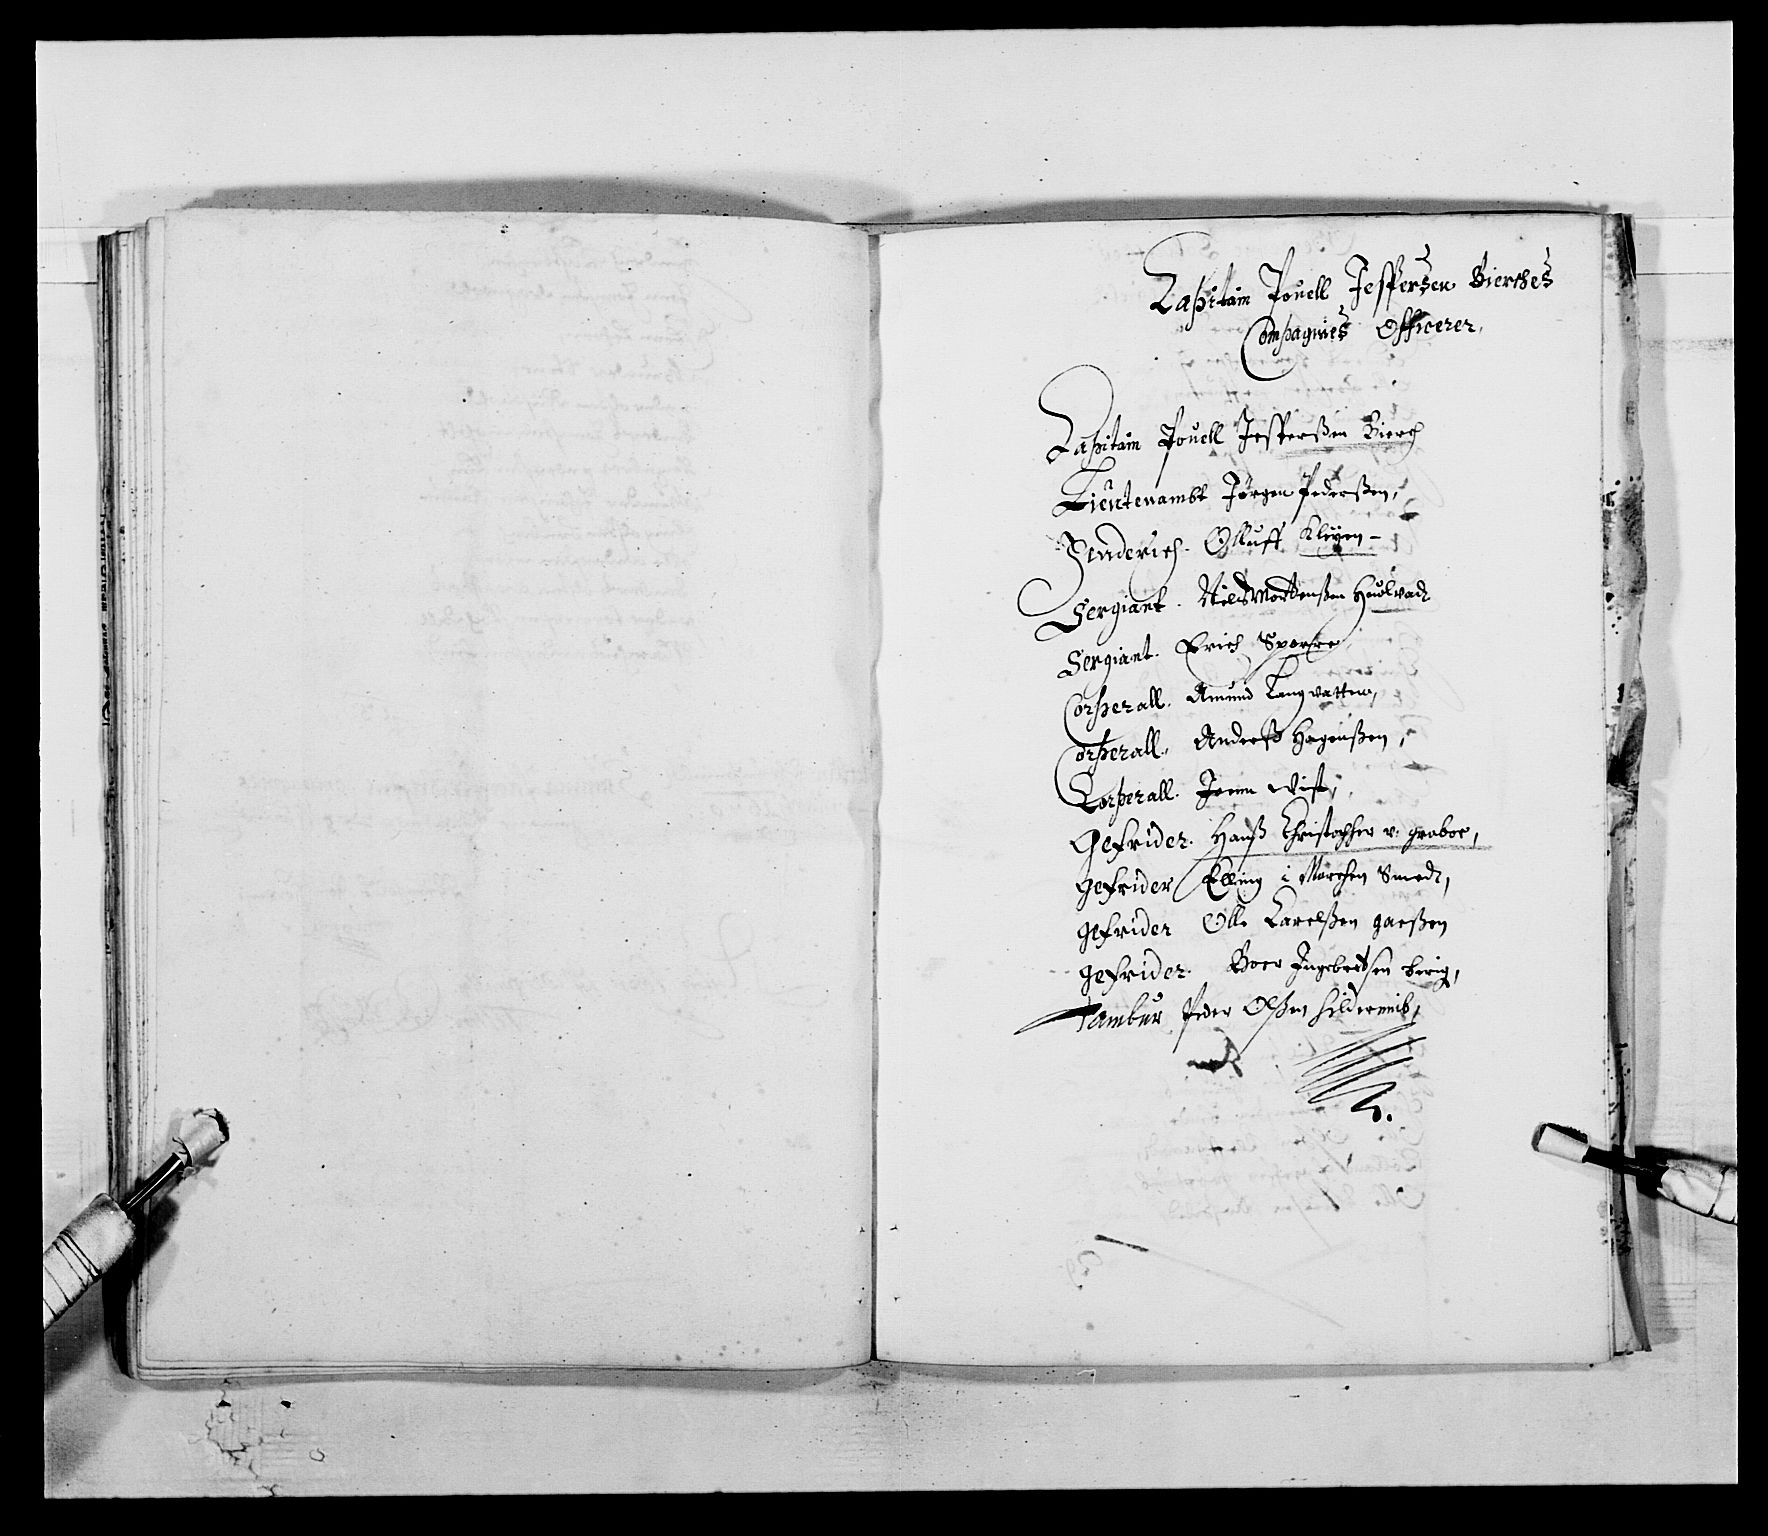 Capitain Pouell Jespersen Bierches
Compagnies Officerer,
Capitain Pouell Jesperßen Bierch
Lieutenambt Jørgen Pederßen,
Fenderich. Olluff Kleyen -
Sergiant. Niels Mortenßen Houlvadt
Sergiant. Erich Sporre
Corperall. Amund Langvatten,
Corperall. Anders Hagenßen,
Corperall. Joenn Wist,
Gefrider. Hanß Christopher v: groboe,
Gefrider Elling i Marchen Smedt,
gefrider Olle Larelßen gaeßen
gefrider. Boer Ingebretsen berig,
Tambur Peder Olßen